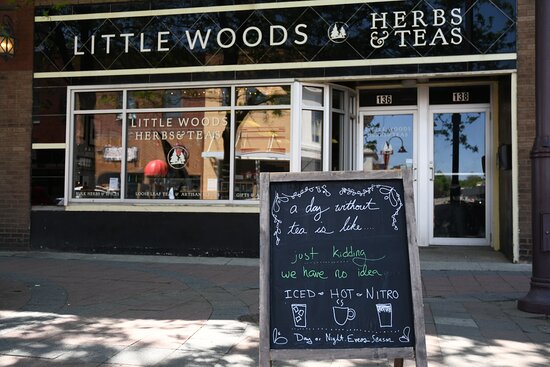 LITTLE WOODS HERBS & TEAS
136 138
LITTLE WOODS
HERBS & TEAS
LITTLE WOODS
BULK HERBS & SPICES LOOSE LEAF TEAS & ARTISAN GIFTS
a day without
tea is like....
just kidding
we have no idea
ICED - HOT - NITRO
Day or Night. Every Season